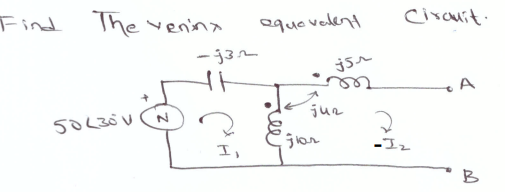 Find The veninx equavalent Circuit.
-j3Ω
j5Ω
A
+
50∠30 V
N
j4Ω
I₁
j10Ω
-I₂
B